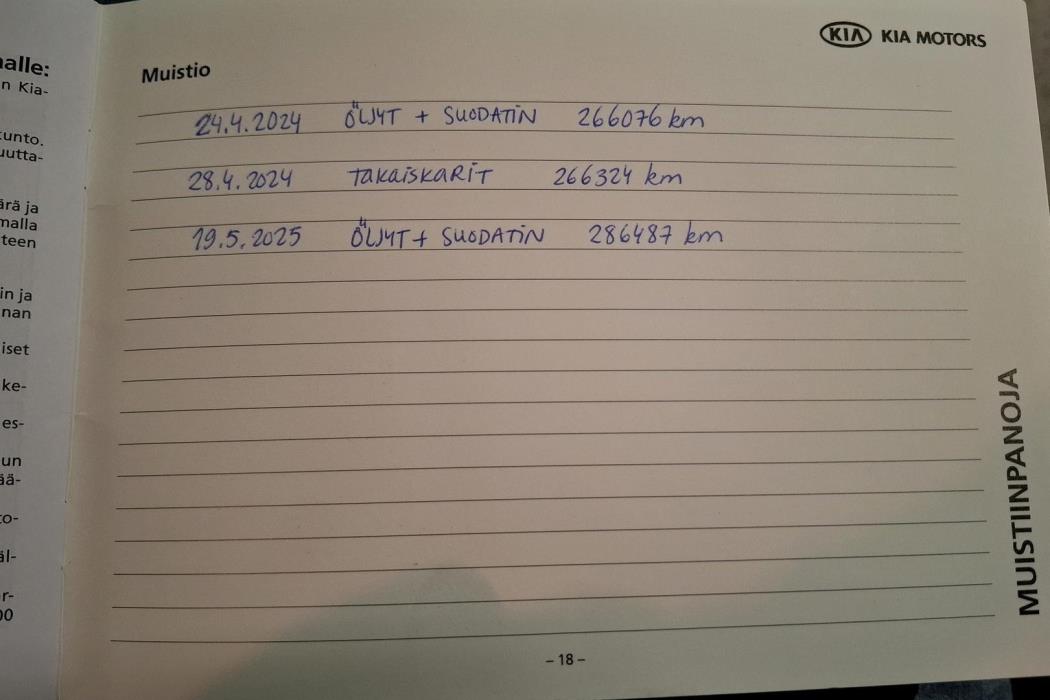 alle:
n Kia-
kunto.
uutta-
ärä ja
malla
teen
in ja
nan
iset
ke-
es-
un
ää-
to-
äl-
r-
00
KIA KIA MOTORS
Muistio
24.4.2024 ÖLJYT + SUODATIN 266076 km
28.4.2024 TAKAISKARIT 266324 km
19.5.2025 ÖLJYT + SUODATIN 286487 km
MUISTIINPANOJA
– 18 –